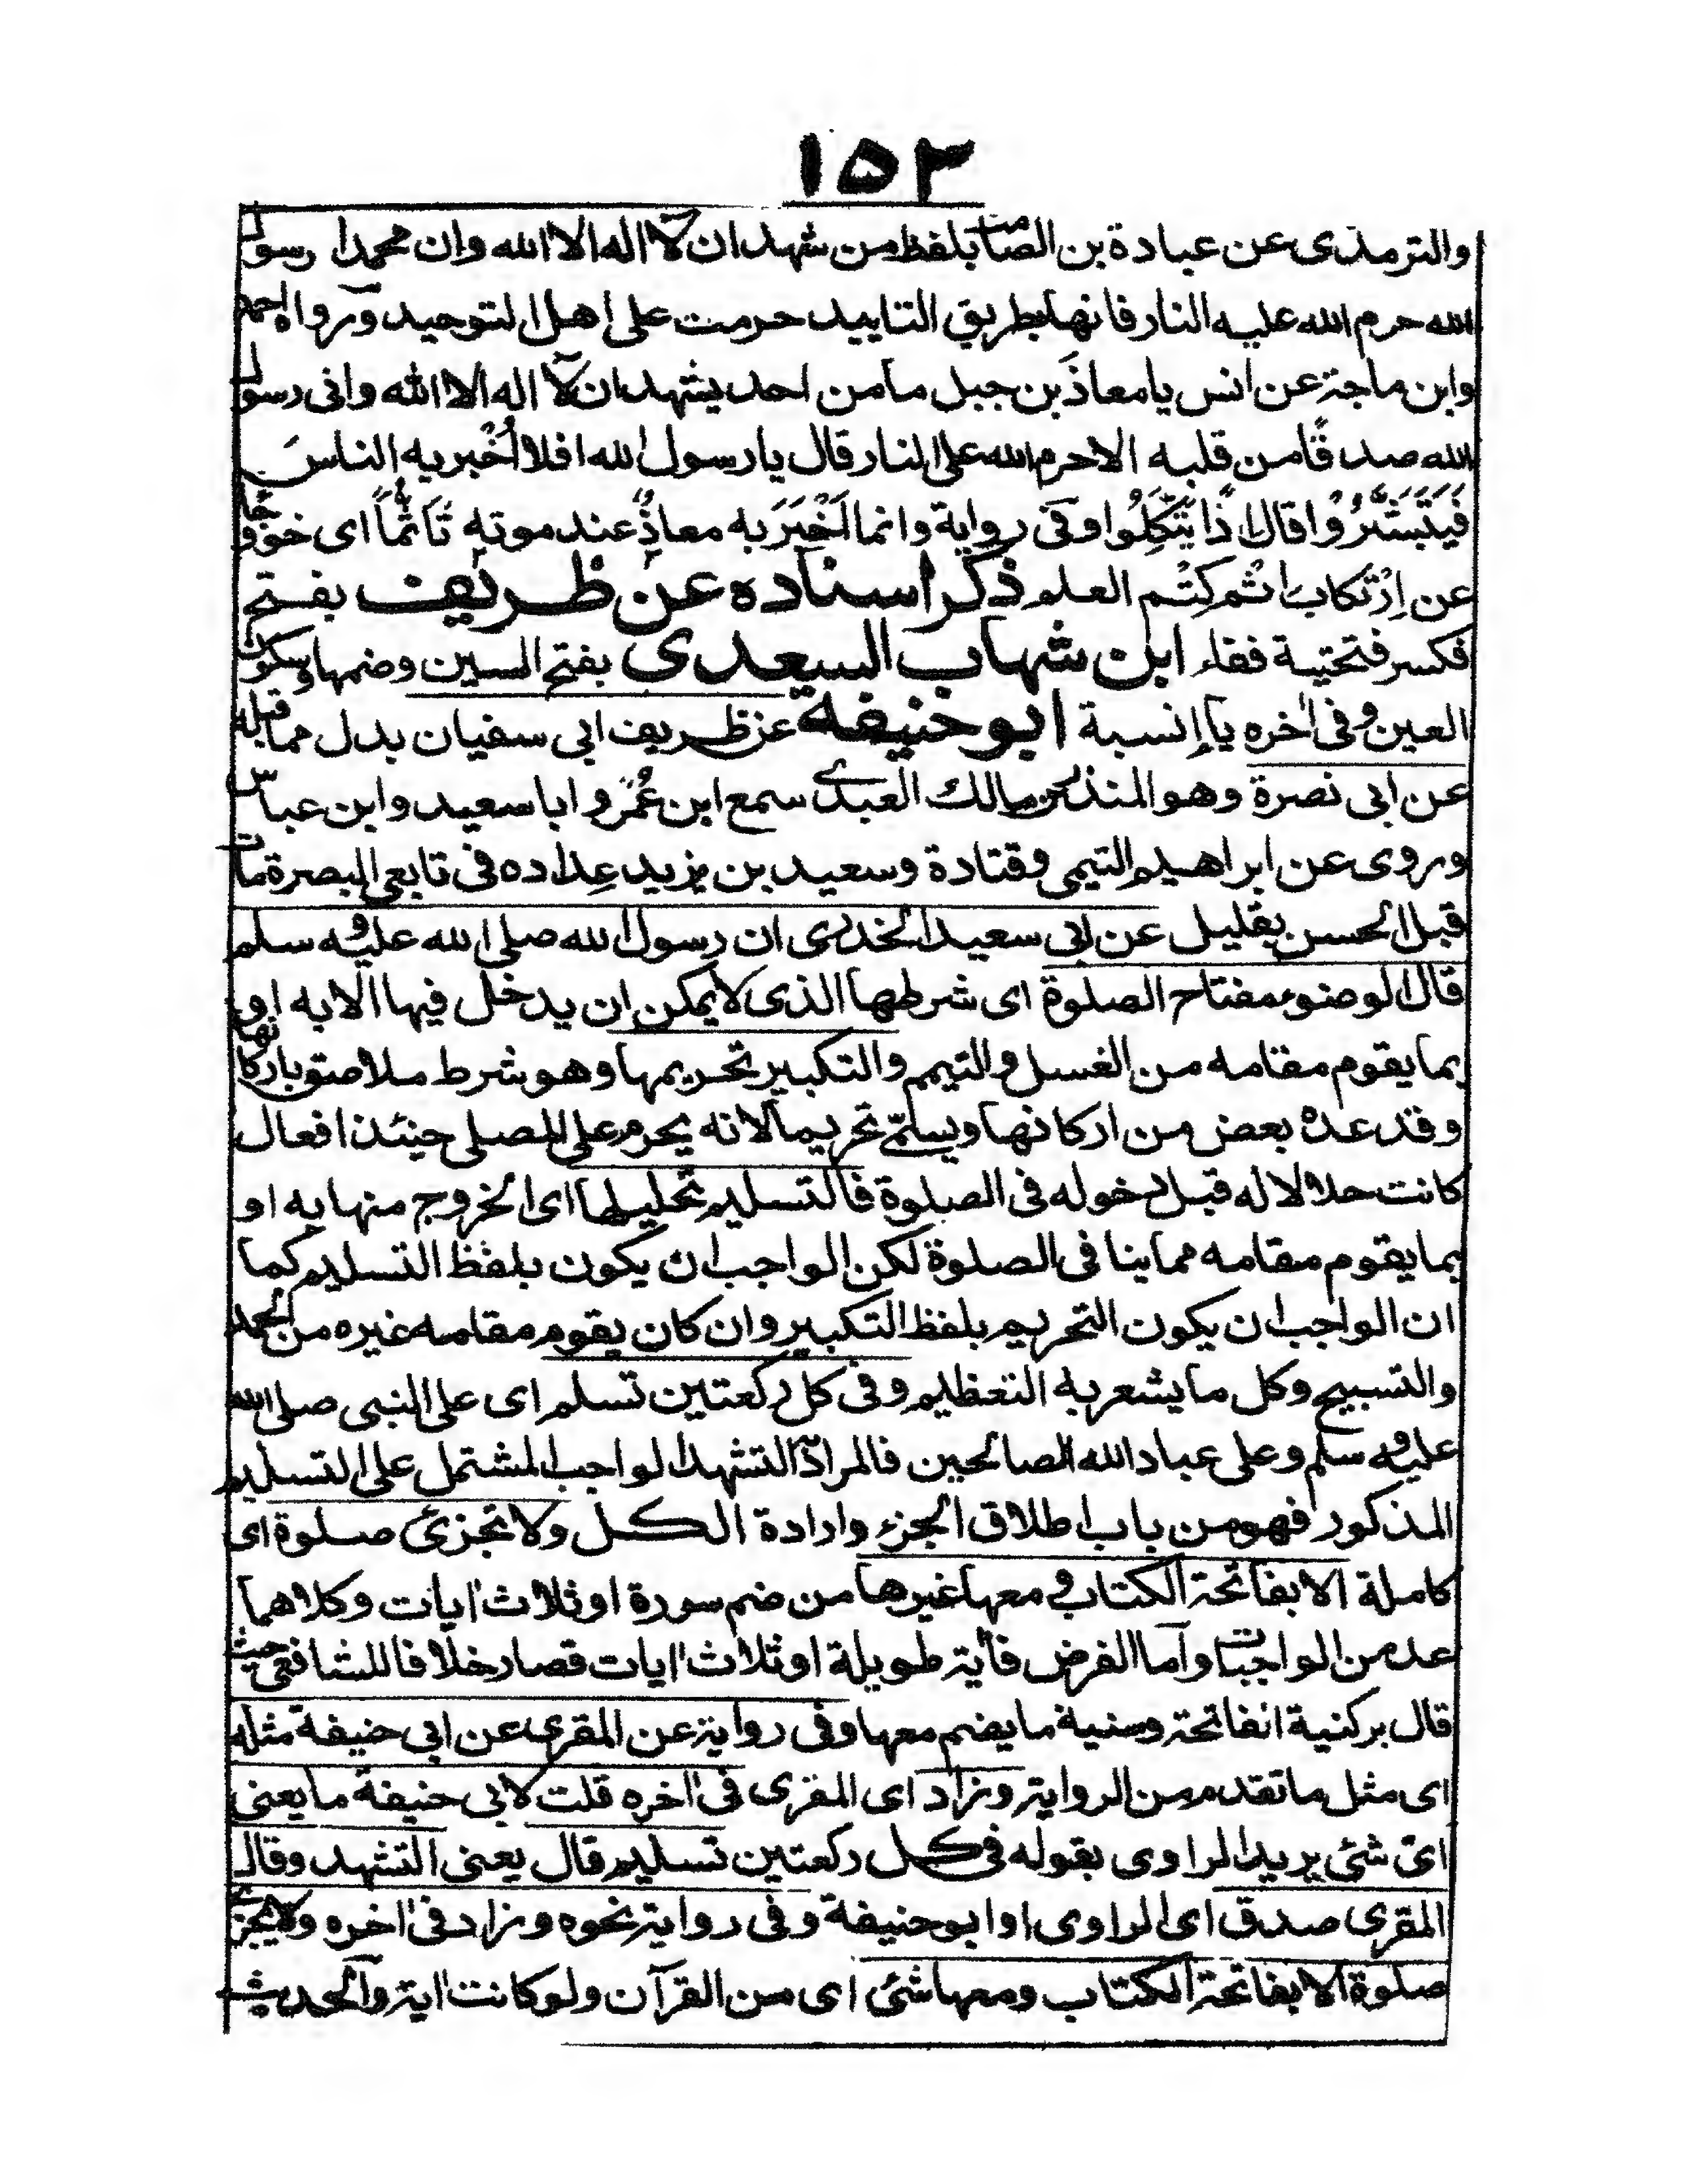 ١٥٢
والترمذى عن عبادة بن الصامت بلفظ من شهد ان لا اله الا الله وان محمدا رسول
الله حرم الله عليه النار فانها بطريق التابيد حرمت على اهل التوحيد ورواه احمد
وابن ماجة عن انس يا معاذ بن جبل ما من احد يشهد ان لا اله الا الله وانى رسول
الله صدقًا من قلبه الا حرم الله على النار قال يا رسول الله افلا اُخْبر به الناسَ
فَيَتَبَشَّرُوْا قال اِذًا يَتَّكِلُوا وفى رواية وانما اَخْبَرَ به معاذٌ عند موته تَأَثُّمًا اى خوفا
عن اِرْتكاب اثم كَتْم العلم ذكر اسناده عن ظريف بفتح
فكسر فتحتية ففاء ابن شهاب السعدى بفتح السين وضمها وسكون
العين وفى اخره ياء نسبة ابو حنيفة عن ظريف ابى سفيان بدل مما قبله
عن ابى نصرة وهو المنذر بن مالك العبدى سمع ابن عُمَرَ و ابا سعيد وابن عباس
وروى عن ابراهيم التيمى وقتادة وسعيد بن يزيد عِداده فى تابعى البصرة مات
قبل الحسن بقليل عن ابى سعيد الخدرى ان رسول الله صلى الله عليه وسلم
قال الوضوء مفتاح الصلوة اى شرطها الذى لا يمكن ان يدخل فيها الا به او
بما يقوم مقامه من الغسل والتيمم والتكبير تحريمها وهو شرط ملاصق باركانها
وقد عده بعض من اركانها ويسمّى تحريما لانه يحرم على المصلى حينئذ افعال
كانت حلالا له قبل دخوله فى الصلوة فالتسليم تحليلها اى الخروج منها به او
بما يقوم مقامه مما ينافى الصلوة لكن الواجب ان يكون بلفظ التسليم كما
ان الواجب ان يكون التحريم بلفظ التكبير وان كان يقوم مقامه غيره من الحمد
والتسبيح وكل ما يشعر به التعظيم وفى كل ركعتين تسلم اى على النبى صلى الله
عليه وسلم وعلى عباد الله الصالحين فالمراد التشهد الواجب المشتمل على التسليم
المذكور فهو من باب اطلاق الجزء وارادة الكل ولا تجزئ صلوة اى
كاملة الا بفاتحة الكتاب ومعها غيرها من ضم سورة او ثلاث ايات وكلاهما
عد من الواجبات واما الفرض فاٰية طويلة او ثلاث ايات قصار خلافا للشافعى حيث
قال بركنية الفاتحة وسنية ما يضم معها وفى رواية عن المقرى عن ابى حنيفة مثله
اى مثل ما تقدم من الرواية وزاد اى المقرى فى اٰخره قلت لابى حنيفة ما يعنى
اىّ شئ يريد الراوى بقوله فى كل ركعتين تسليم قال يعنى التشهد وقال
المقرى صدق اى الراوى او ابو حنيفة وفى رواية نحوه وزاد فى اخره ولا يجزئ
صلوة الا بفاتحة الكتاب ومعها شئ اى من القرآن ولو كانت اية والحديث